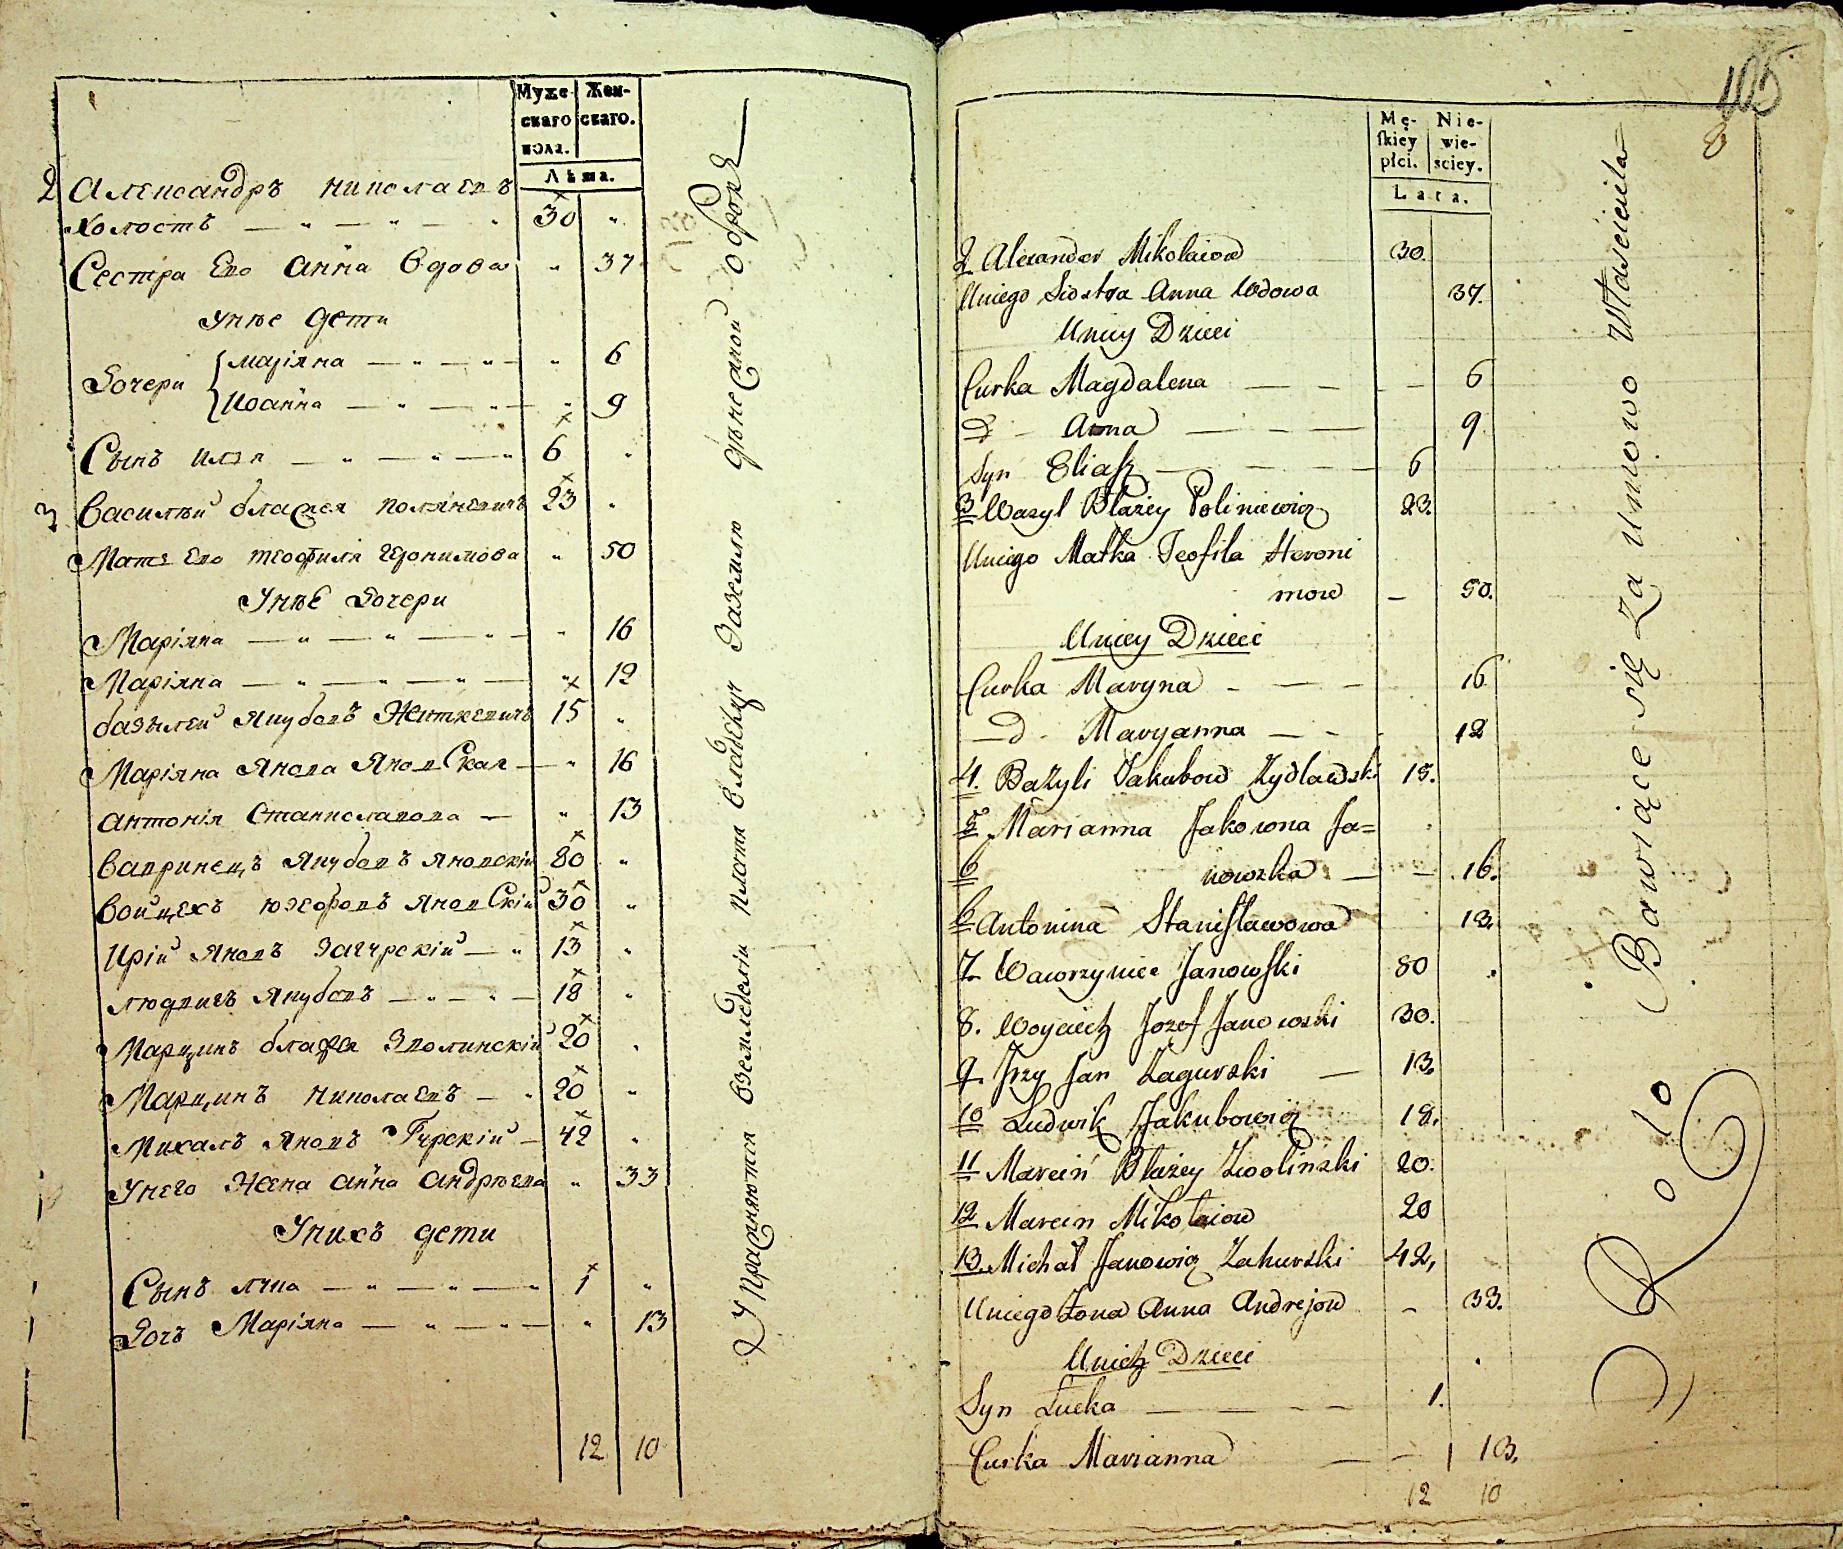 Мужескаго пола.
Женскаго.
Лѣта.
2 Александръ Николаевъ
холостъ — " — " — " 30 "
Сестра Его Анна Вдова " 37
Унѣе Дети
Дочери
Маріяна — " — " — " 6
Иоанна — " — " — " 9
Сынъ Илья — " — " — " 6 "
3 Василѣй Блажея 23 "
Мать Его Теофиля Геронимова " 50
Унѣе Дочери
Маріяна — " — " — " — " 16
Маріяна — " — " — " — " 12
Базылей Якубовъ 15 "
Маріяна Янова Яновская — " 16
Антонія Станиславова — " 13
Вавринецъ Якубовъ Яновскій 80 "
Войцехъ Юзефовъ Яновскій 30 "
Ирій Яновъ Загурскій — " 13 "
Людвигъ Якубовъ — " — " — 18 "
Марцинъ Блажея Зволинскій 20 "
Марцинъ Николаевъ — " 20 "
Михалъ Яновъ Гурскій — 42 "
Унего Жена Анна Андрѣева " 33
Унихъ дети
Сынъ Лука — " — " — " 1 "
Дочь Маріяна — " — " — " 13
12 10
Упражняются Вземледѣліи
105
8
Męskiey płci.
Niewiesciey.
Lata.
2 Alexander Mikolaiow 30.
Uniego Siostra Anna Wdowa 37.
Uniey Dzieci
Curka Magdalena — — — — 6
D — Anna — — — 9
Syn Eliasz — — — — 6
3 Wasyl Błażey Poliniewicz 23.
Uniego Matka Teofila Heroni
mow — 50.
Uniey Dzieci
Curka Maryna — — — 16
— D — Maryanna — — — 12
4. Bazyli Jakubow Zydlawski 15.
5 Marianna Jakowna Ja=
6 nowska — — 16.
6 Antonina Stanisławowa 13.
7. Wawrzyniec Janowski 80
8. Woyciech Jozef Janowski 30.
9. Jrzy Jan Zagurski — 13.
10 Ludwik Jakubowicz 18.
11 Marcin Błażey Zwolinski 20.
12 Marcin Mikołaiow 20
13. Michał Janowicz Zahurski 42,
Uniego Zona Anna Andrejow — 33.
Unich Dzieci
Syn Łucka — — — — 1.
Curka Marianna — — 13.
12 10
Bawiące się za Umowo Własciciela